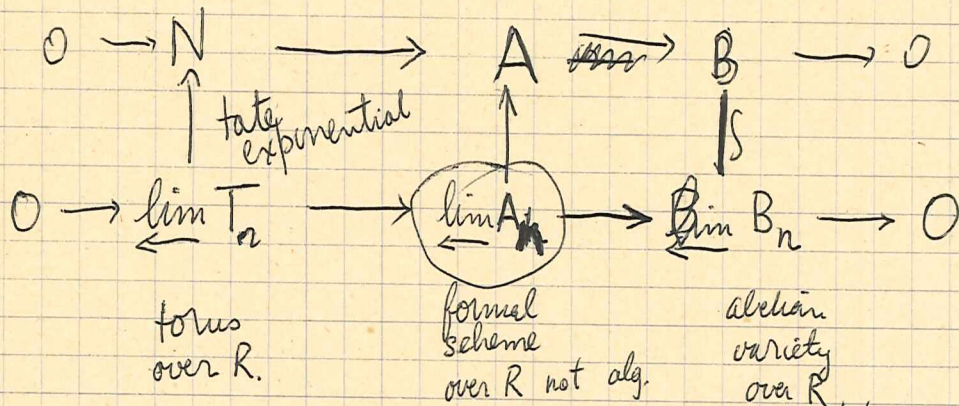 0 → N → A → B → 0
tate
exponential
S
0 → lim T_n → lim A_n → lim B_n → 0
torus
over R.
formal
scheme
over R not alg.
abelian
variety
over R